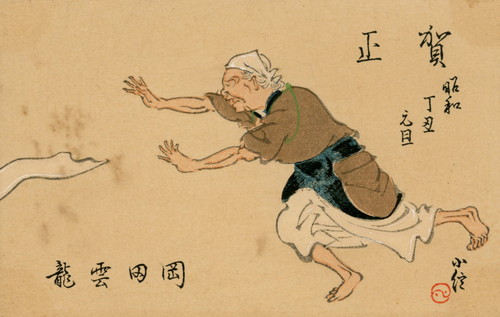 賀正
昭和
丁丑
元旦
小信
岡田雲龍